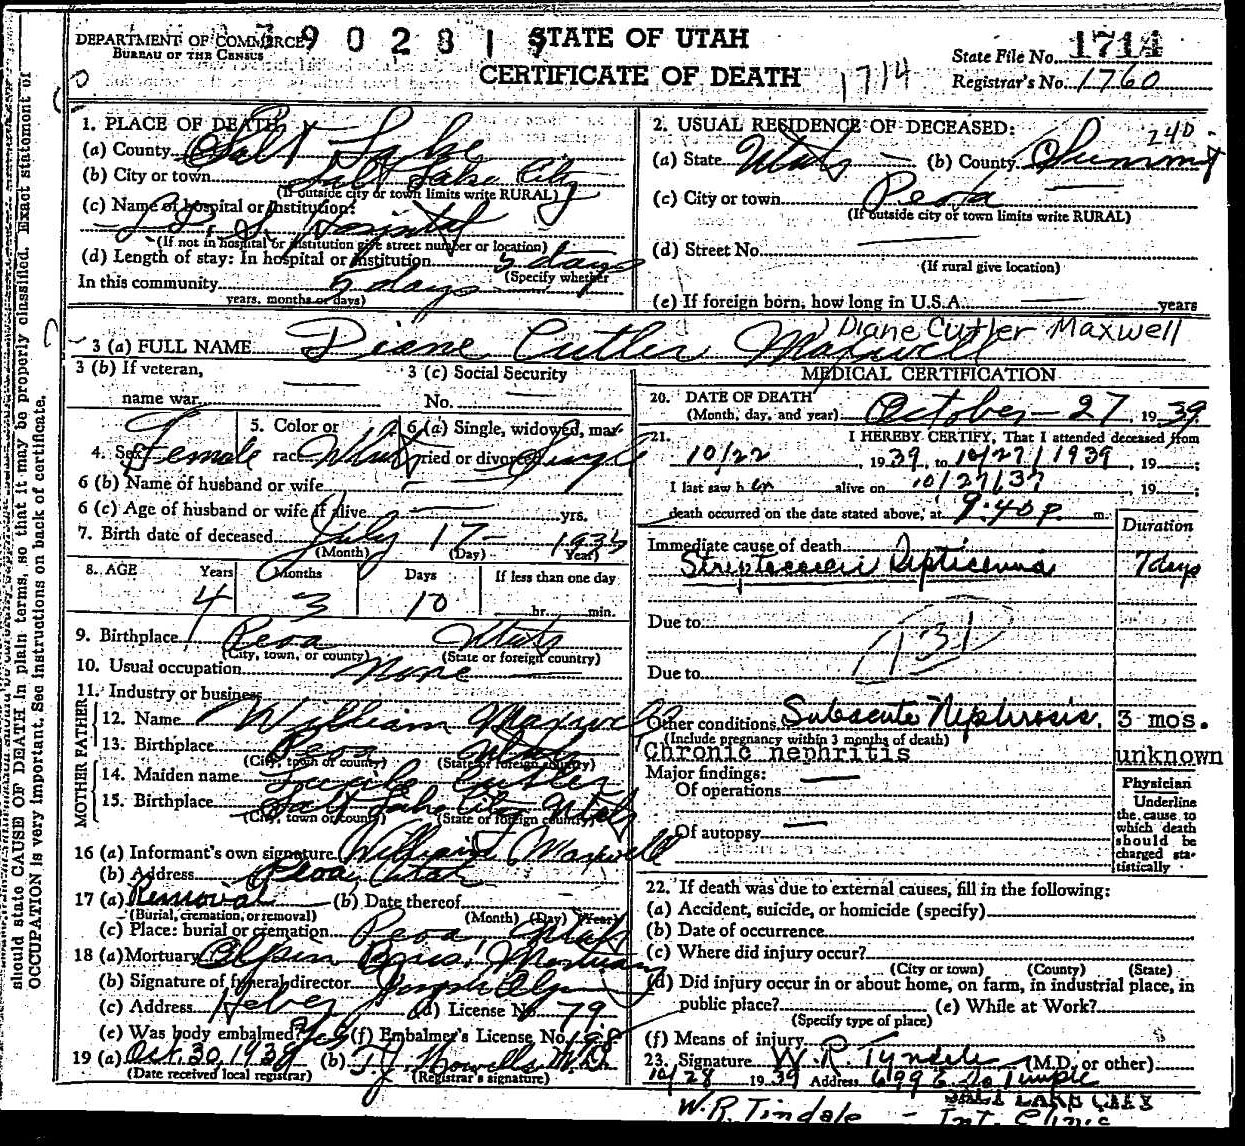 DEPARTMENT OF COMMERCE
BUREAU OF THE CENSUS
STATE OF UTAH
CERTIFICATE OF DEATH
1714
State File No. 1714
Registrar's No. 1760
1. PLACE OF DEATH
(a) County Salt Lake
(b) City or town Salt Lake City
(If outside city or town limits write RURAL)
(c) Name of hospital or institution:
L.D.S. Hospital
(If not in hospital or institution give street number or location)
(d) Length of stay: In hospital or institution 5 days
(Specify whether
In this community 5 days
years, months or days)
2. USUAL RESIDENCE OF DECEASED:
240
(a) State Utah (b) County Summit
(c) City or town Peoa
(If outside city or town limits write RURAL)
(d) Street No.
(If rural give location)
(e) If foreign born, how long in U.S.A. years
3 (a) FULL NAME Diane Cutler Maxwell
Diane Cutler Maxwell
3 (b) If veteran,
name war
3 (c) Social Security
No.
4. Sex Female
5. Color or
race White
6 (a) Single, widowed, mar-
ried or divorced Single
6 (b) Name of husband or wife
6 (c) Age of husband or wife if alive yrs.
7. Birth date of deceased July 17 1935
(Month) (Day) (Year)
8. AGE Years Months Days If less than one day
4 3 10 hr. min.
9. Birthplace Peoa Utah
(City, town, or county) (State or foreign country)
10. Usual occupation None
11. Industry or business
FATHER
12. Name William Maxwell
13. Birthplace Peoa Utah
(City, town or county) (State or foreign country)
MOTHER
14. Maiden name Lucile Cutler
15. Birthplace Salt Lake City Utah
(City, town or county) (State or foreign country)
16 (a) Informant's own signature William Maxwell
(b) Address Peoa Utah
17 (a) Removal (b) Date thereof
(Burial, cremation, or removal) (Month) (Day) (Year)
(c) Place: burial or cremation Peoa, Utah
18 (a) Mortuary Olpin Bros. Mortuary
(b) Signature of funeral director Joseph Olpin
(c) Address Heber (d) License No. 79
(e) Was body embalmed? Yes (f) Embalmer's License No. 198
19 (a) Oct. 30, 1939 (b) T.J. Howells M.D.
(Date received local registrar) (Registrar's signature)
MEDICAL CERTIFICATION
20. DATE OF DEATH
(Month, day, and year) October - 27, 1939
21. I HEREBY CERTIFY, That I attended deceased from
10/22, 1939, to 10/27/1939, 19 ;
I last saw her alive on 10/27/39, 19 ;
death occurred on the date stated above, at 9:40 P. m.
Duration
Immediate cause of death
Streptococcic Septicemia 7 days
Due to
131
Due to
Other conditions Subacute Nephrosis. 3 mos.
(Include pregnancy within 3 months of death)
Chronic nephritis unknown
Major findings:
Of operations
Of autopsy
Physician
Underline
the cause to
which death
should be
charged sta-
tistically
22. If death was due to external causes, fill in the following:
(a) Accident, suicide, or homicide (specify)
(b) Date of occurrence
(c) Where did injury occur?
(City or town) (County) (State)
(d) Did injury occur in or about home, on farm, in industrial place, in
public place? (e) While at Work?
(Specify type of place)
(f) Means of injury
23. Signature W. R. Tyndale (M.D. or other)
10/28 1939 Address 699 E. So Temple
SALT LAKE CITY
W.R. Tindale - Int. Clinic
should state CAUSE OF DEATH in plain terms, so that it may be properly classified. Exact statement of
OCCUPATION is very important. See instructions on back of certificate.